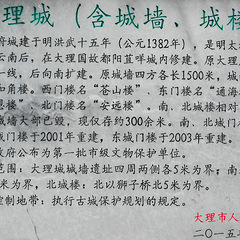 理城（含城墙、城楼
府城建于明洪武十五年（公元1382年），是明太
云南后，在大理国故都阳苴咩城内修建。原大理
一线，后向南扩建。原城墙四方各长1500米，城
和角楼。西门楼名“苍山楼”、东门楼名“通海
恩楼”、北门楼名“安远楼”。南、北城楼相对
城墙大部已毁，现仅存约300余米。南、北城
城门楼于2001年重建，东城门楼于2003年重建
政府公布为第一批市级文物保护单位。
范围：大理城城墙遗址四周两侧各5米为界；南
米为界，北城楼：北以狮子桥北5米为界。
控制地带：执行古城保护规划的规定。
大理市人
二〇一五